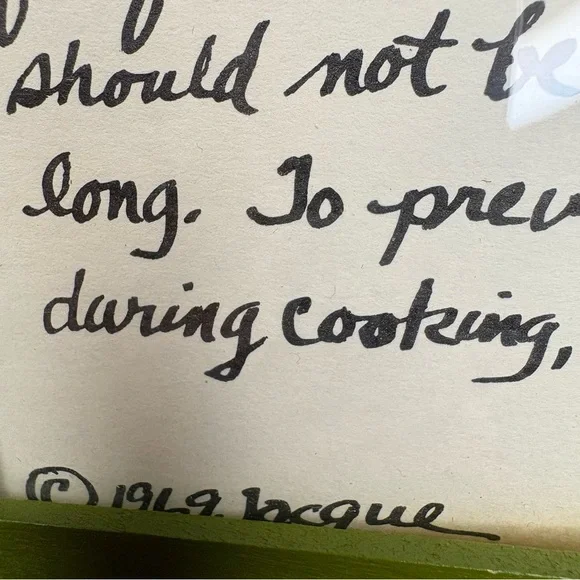 should not be
long. To prev
during cooking,
© 1969 Jacque